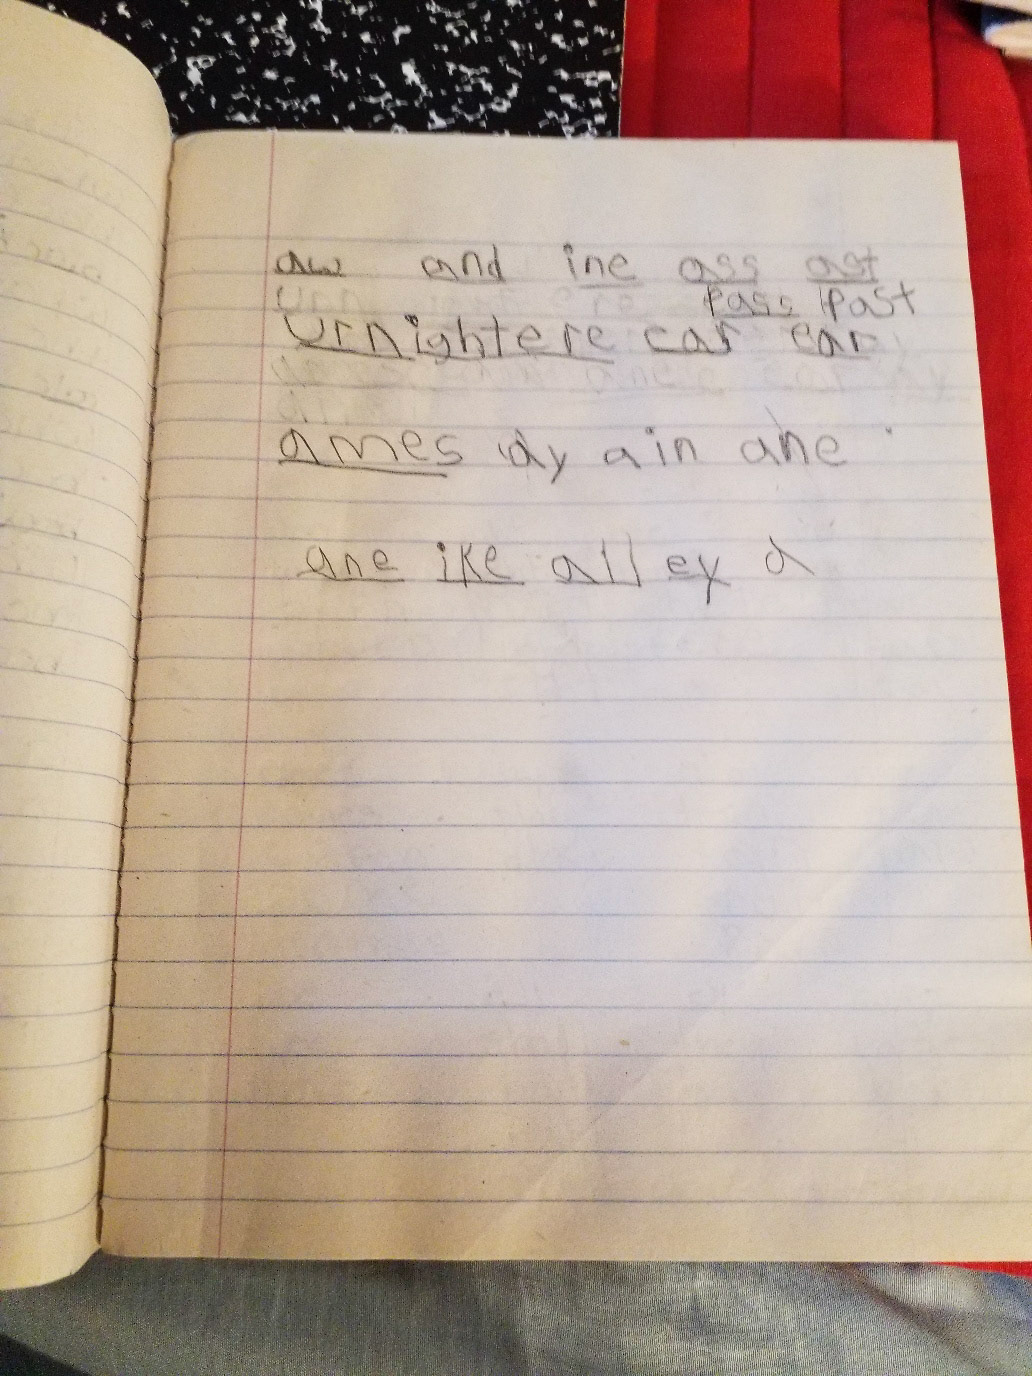 aw and ine ass ast
pass past
urnightere car ear
ames ay ain ane
ane ike alley a